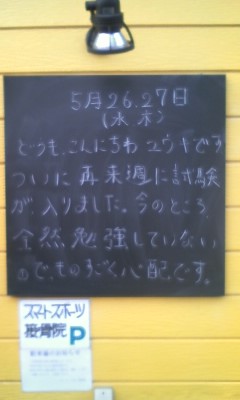 5月26.27日
(水 木)
どうも、こんにちわ ユウヤです
ついに 再来週に試験
が、入りました。今のところ、
全然勉強していない
ので、ものすごく心配です。
スマートスポーツ
接骨院 P